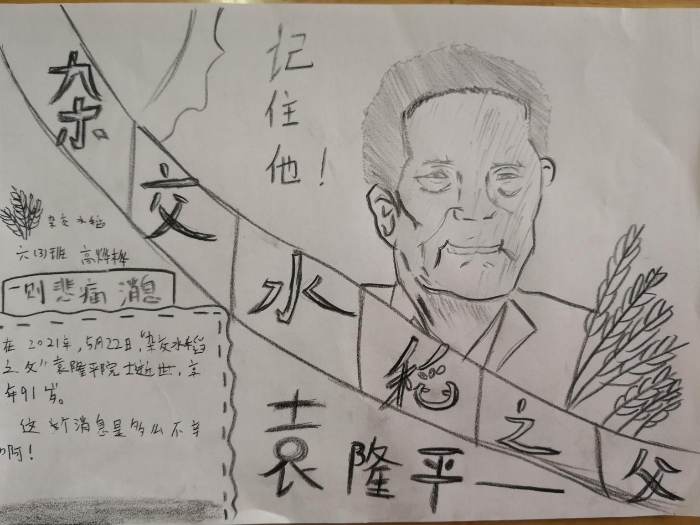 杂交水稻之父
记住他！
杂交水稻
六(3)班 高
一则悲痛消息
在2021年,5月22日,"杂交水稻
之父"袁隆平院士逝世,享
年91岁。
这个消息是多么不幸
啊！
袁隆平——